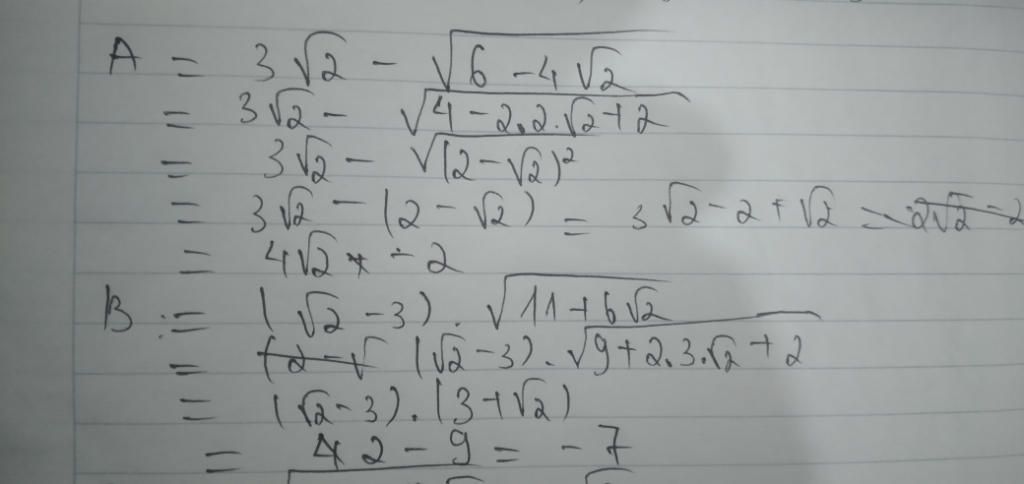 A = 3√2 - √(6 - 4√2)
= 3√2 - √(4 - 2.2.√2 + 2)
= 3√2 - √((2 - √2)²)
= 3√2 - (2 - √2) = 3√2 - 2 + √2 =
= 4√2 - 2
B := (√2 - 3). √(11 + 6√2)
= (√2 - 3). √(9 + 2.3.√2 + 2)
= (√2 - 3). (3 + √2)
= 2 - 9 = - 7